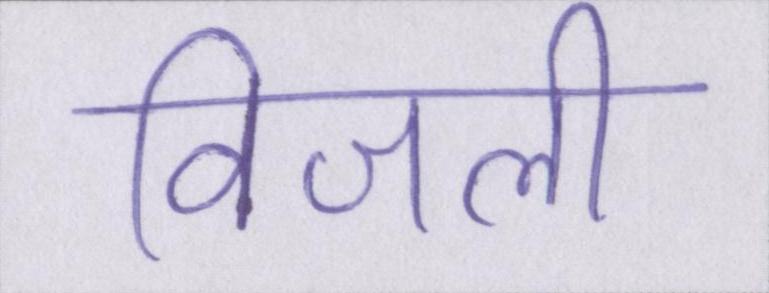 विजली